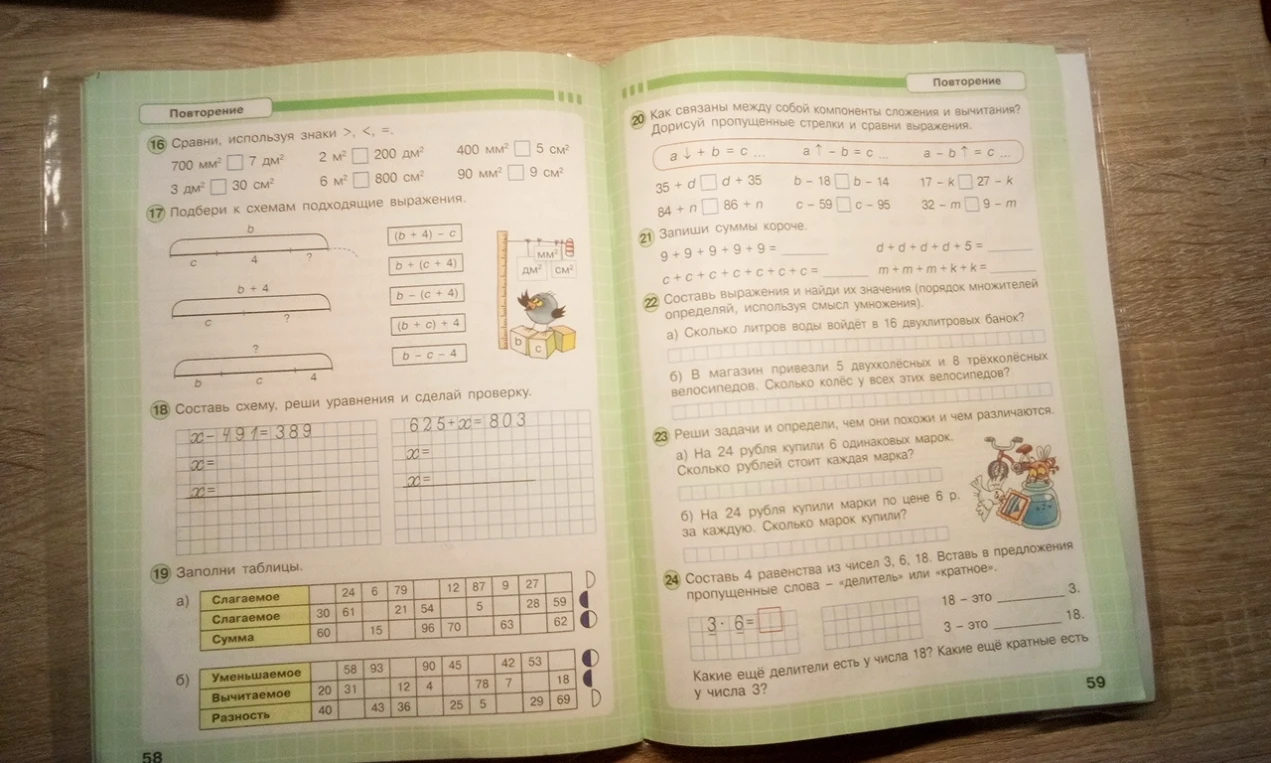 Повторение
16 Сравни, используя знаки >, <, =.
700 мм² □ 7 дм² 2 м² □ 200 дм² 400 мм² □ 5 см²
3 дм² □ 30 см² 6 м² □ 800 см² 90 мм² □ 9 см²
17 Подбери к схемам подходящие выражения.
b
c 4 ?
b + 4
c ?
?
b c 4
(b + 4) – c
b + (c + 4)
b – (c + 4)
(b + c) + 4
b – c – 4
мм²
дм² см²
b c
18 Составь схему, реши уравнения и сделай проверку.
x – 491 = 389 625 + x = 803
x = x =
x = x =
19 Заполни таблицы.
а)
Слагаемое 24 6 79 12 87 9 27
Слагаемое 30 61 21 54 5 28 59
Сумма 60 15 96 70 63 62
б)
Уменьшаемое 58 93 90 45 42 53
Вычитаемое 20 31 12 4 78 7 18
Разность 40 43 36 25 5 29 69
58
Повторение
20 Как связаны между собой компоненты сложения и вычитания?
Дорисуй пропущенные стрелки и сравни выражения.
a ↓ + b = c ... a ↑ – b = c ... a – b ↑ = c ...
35 + d □ d + 35 b – 18 □ b – 14 17 – k □ 27 – k
84 + n □ 86 + n c – 59 □ c – 95 32 – m □ 9 – m
21 Запиши суммы короче.
9 + 9 + 9 + 9 + 9 = ______ d + d + d + d + 5 = ______
c + c + c + c + c + c + c = ______ m + m + m + k + k = ______
22 Составь выражения и найди их значения (порядок множителей
определяй, используя смысл умножения).
а) Сколько литров воды войдёт в 16 двухлитровых банок?
б) В магазин привезли 5 двухколёсных и 8 трёхколёсных
велосипедов. Сколько колёс у всех этих велосипедов?
23 Реши задачи и определи, чем они похожи и чем различаются.
а) На 24 рубля купили 6 одинаковых марок.
Сколько рублей стоит каждая марка?
б) На 24 рубля купили марки по цене 6 р.
за каждую. Сколько марок купили?
24 Составь 4 равенства из чисел 3, 6, 18. Вставь в предложения
пропущенные слова – «делитель» или «кратное».
3 · 6 = □
18 – это ________ 3.
3 – это ________ 18.
Какие ещё делители есть у числа 18? Какие ещё кратные есть
у числа 3?
59